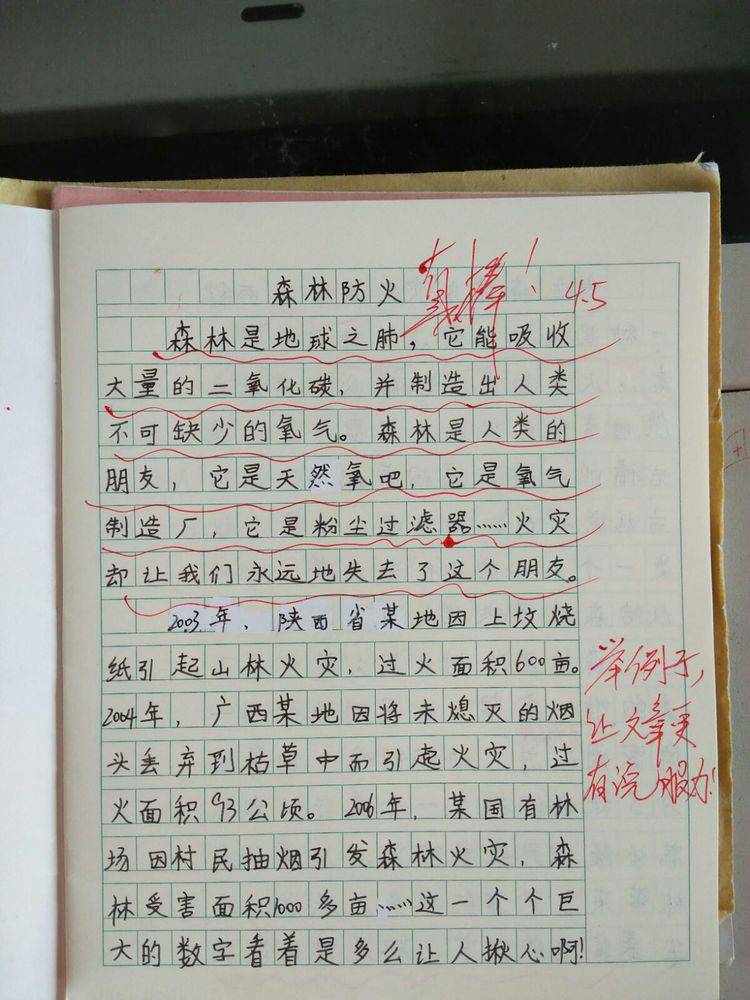 森林防火
真棒！ 4.5
森林是地球之肺，它能吸收
大量的二氧化碳，并制造出人类
不可缺少的氧气。森林是人类的
朋友，它是天然氧吧，它是氧气
制造厂，它是粉尘过滤器……火灾
却让我们永远地失去了这个朋友。
2003年，陕西省某地因上坟烧
纸引起山林火灾，过火面积600亩。
2004年，广西某地因将未熄灭的烟
头丢弃到枯草中而引起火灾，过
火面积93公顷。2006年，某国有林
场因村民抽烟引发森林火灾，森
林受害面积1000多亩……这一个个巨
大的数字看着是多么让人揪心啊！
举例子，
让文章更
有说服力！